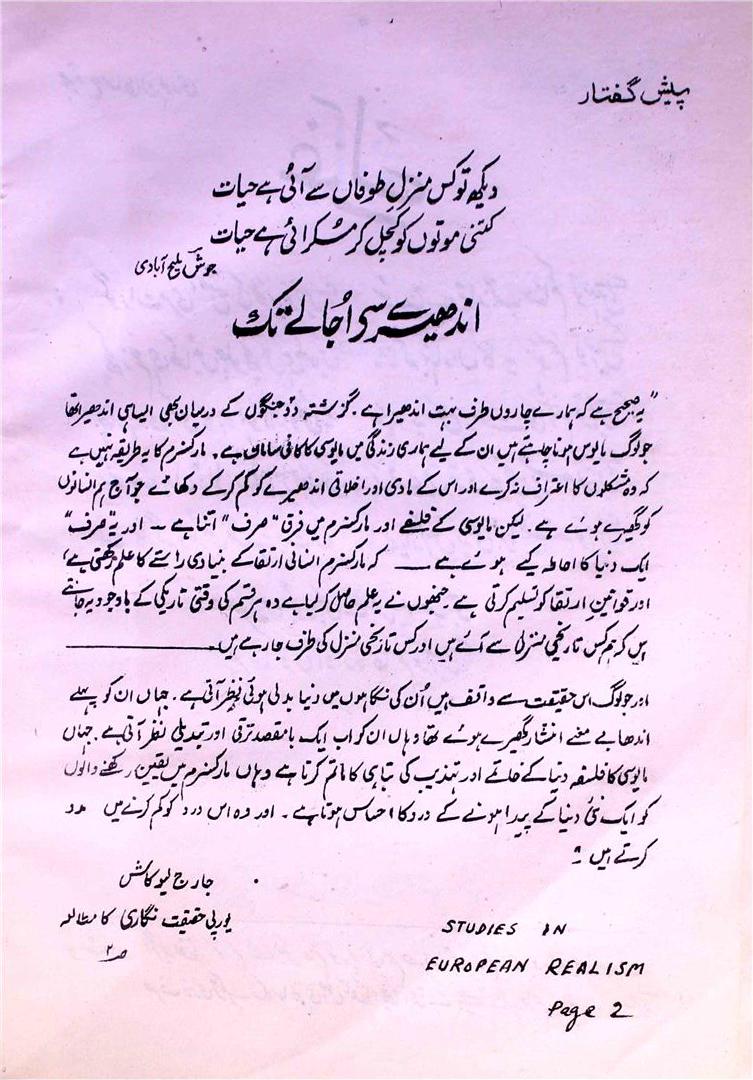 پیش گفتار
دیکھ تو کس منزلِ طوفاں سے آئی ہے حیات
کتنی موتوں کو کچل کر مسکرائی ہے حیات
جوش ملیح آبادی
اندھیرے سے اُجالے تک
" یہ صحیح ہے کہ ہمارے چاروں طرف بہت اندھیرا ہے ۔ گزشتہ دو جنگوں کے درمیان بھی ایسا ہی اندھیرا تھا
جو لوگ مایوس ہونا چاہتے ہیں ان کے لیے ہماری زندگی میں مایوسی کا کافی سامان ہے ۔ مارکسزم کا یہ طریقہ نہیں ہے
کہ وہ مشکلوں کا اعتراف نہ کرے اور اس کے مادی اور اخلاقی اندھیرے کو کم کرکے دکھائے جو آج ہم انسانوں
کو گھیرے ہوئے ہے ۔ لیکن مایوسی کے فلسفے اور مارکسزم میں فرق "صرف" اتنا ہے — اور یہ "صرف"
ایک دنیا کا احاطہ کیے ہوئے ہے —— کہ مارکسزم انسانی ارتقا کے بنیادی راستے کا علم رکھتی ہے،
اور قوانینِ ارتقا کو تسلیم کرتی ہے ۔ جنھوں نے یہ علم حاصل کر لیا ہے وہ ہر قسم کی وقتی تاریکی کے باوجود یہ جانتے
ہیں کہ ہم کس تاریخی منزل سے آئے ہیں اور کس تاریخی منزل کی طرف جا رہے ہیں ۔
اور جو لوگ اس حقیقت سے واقف ہیں اُن کی نگاہوں میں دنیا بدلی ہوئی نظر آتی ہے ۔ جہاں ان کو پہلے
اندھا بے معنے انتشار گھیرے ہوئے تھا وہاں ان کو اب ایک بامقصد ترقی اور تبدیلی نظر آتی ہے ۔ جہاں
مایوسی کا فلسفہ دنیا کے خاتمے اور تہذیب کی تباہی کا ماتم کرتا ہے وہاں مارکسزم میں یقین رکھنے والوں
کو ایک نئی دنیا کے پیدا ہونے کے درد کا احساس ہوتا ہے ۔ اور وہ اس درد کو کم کرنے میں مدد
کرتے ہیں ۔"
جارج لیوکاش
یورپی حقیقت نگاری کا مطالعہ
ص ۲
STUDIES IN
EUROPEAN REALISM
Page 2